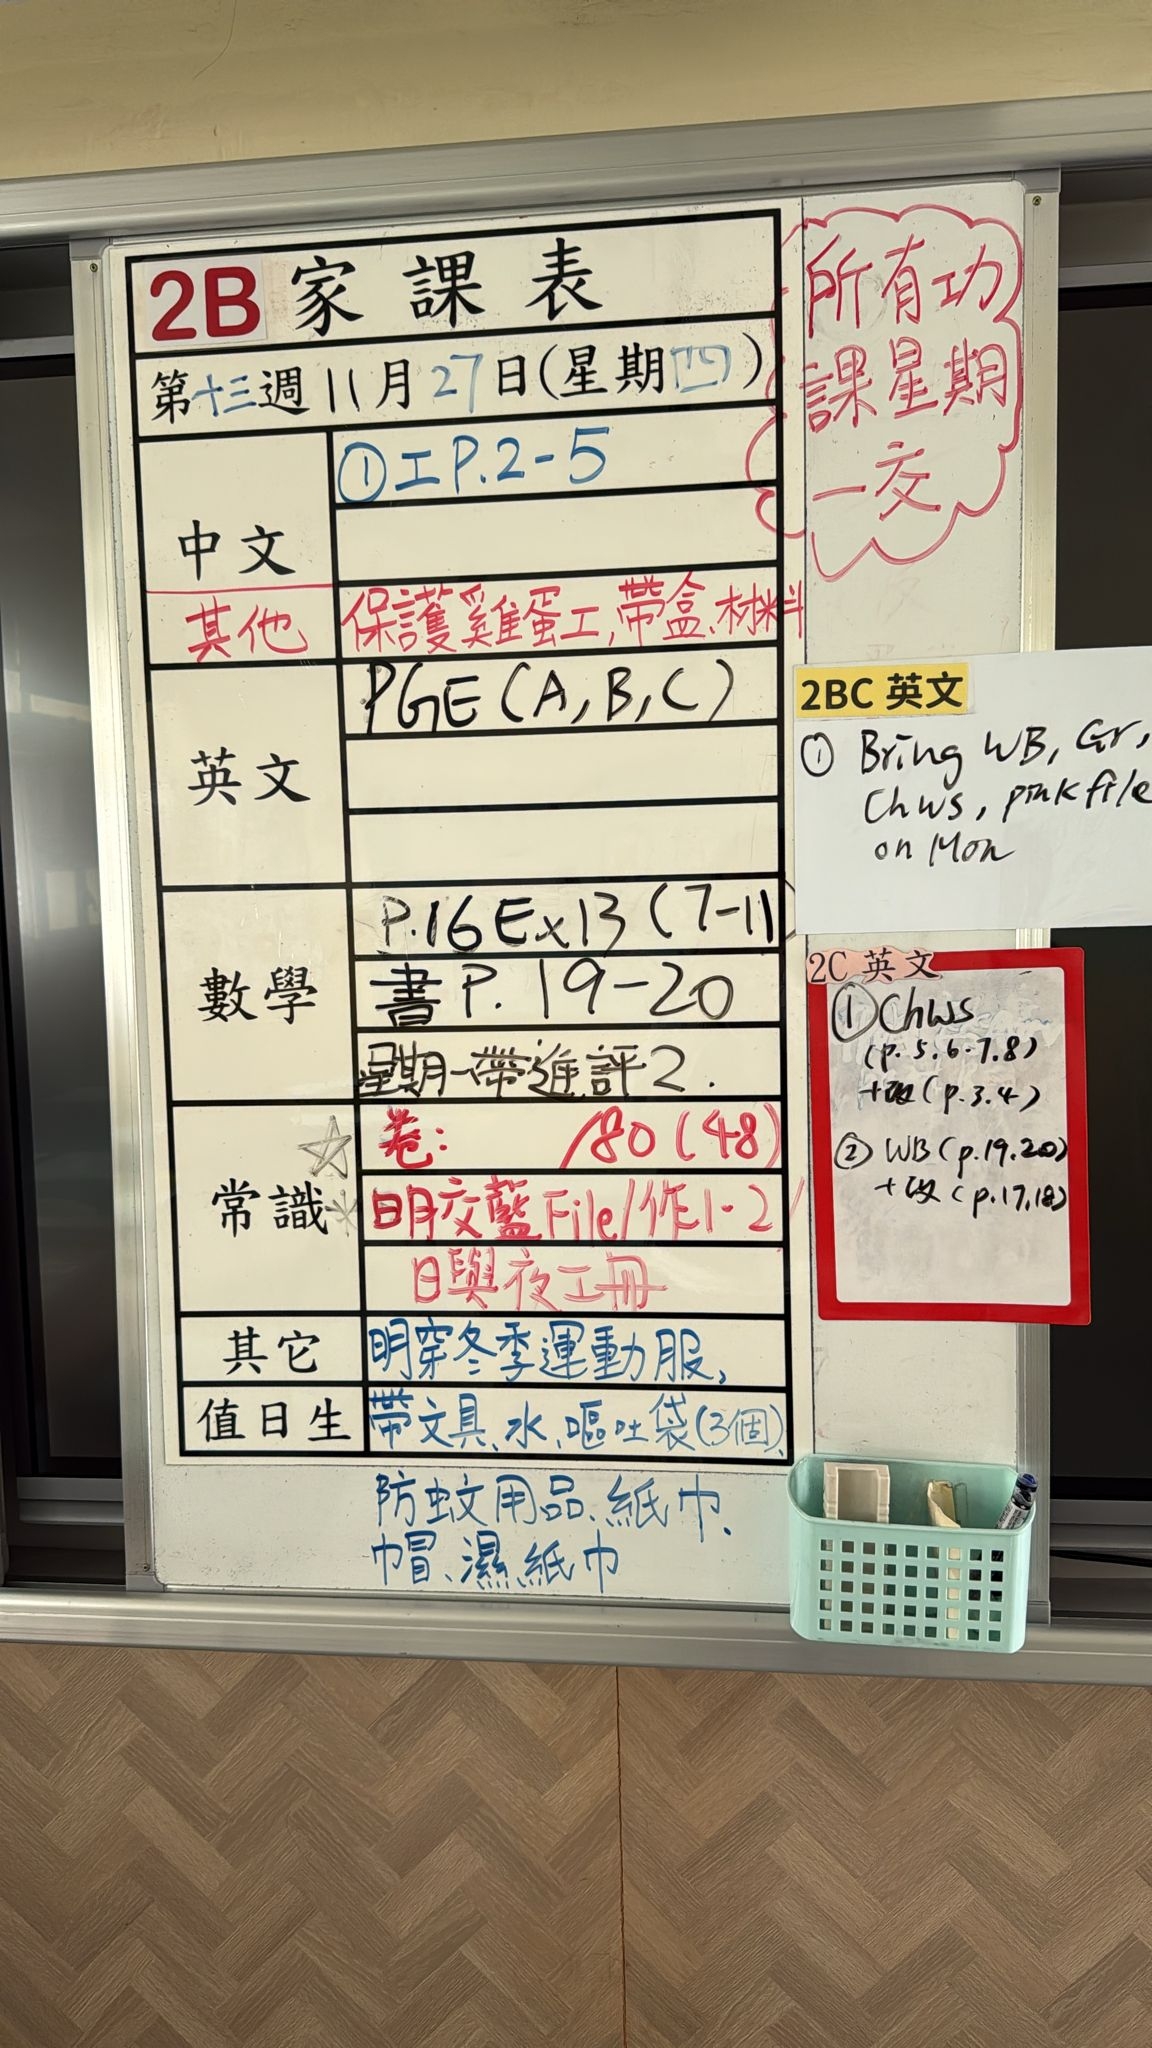 2B 家課表
第十三週11月27日(星期四)
中文
①工P.2-5
其他
保護雞蛋工,帶盒、材料
英文
PGE(A,B,C)
數學
P.16Ex13(7-11)
書P.19-20
星期一帶進評2.
常識
卷: /80(48)
明交藍File/作1-2
日與夜工冊
其它
明穿冬季運動服,
值日生
帶文具、水、嘔吐袋(3個)、
防蚊用品、紙巾、
帽、濕紙巾
所有功
課星期
一交
2BC 英文
① Bring WB, Gr,
Chws, pink file
on Mon
2C 英文
①Chws
(p.5.6.7.8)
+改(p.3.4)
② WB(p.19.20)
+改(p.17,18)